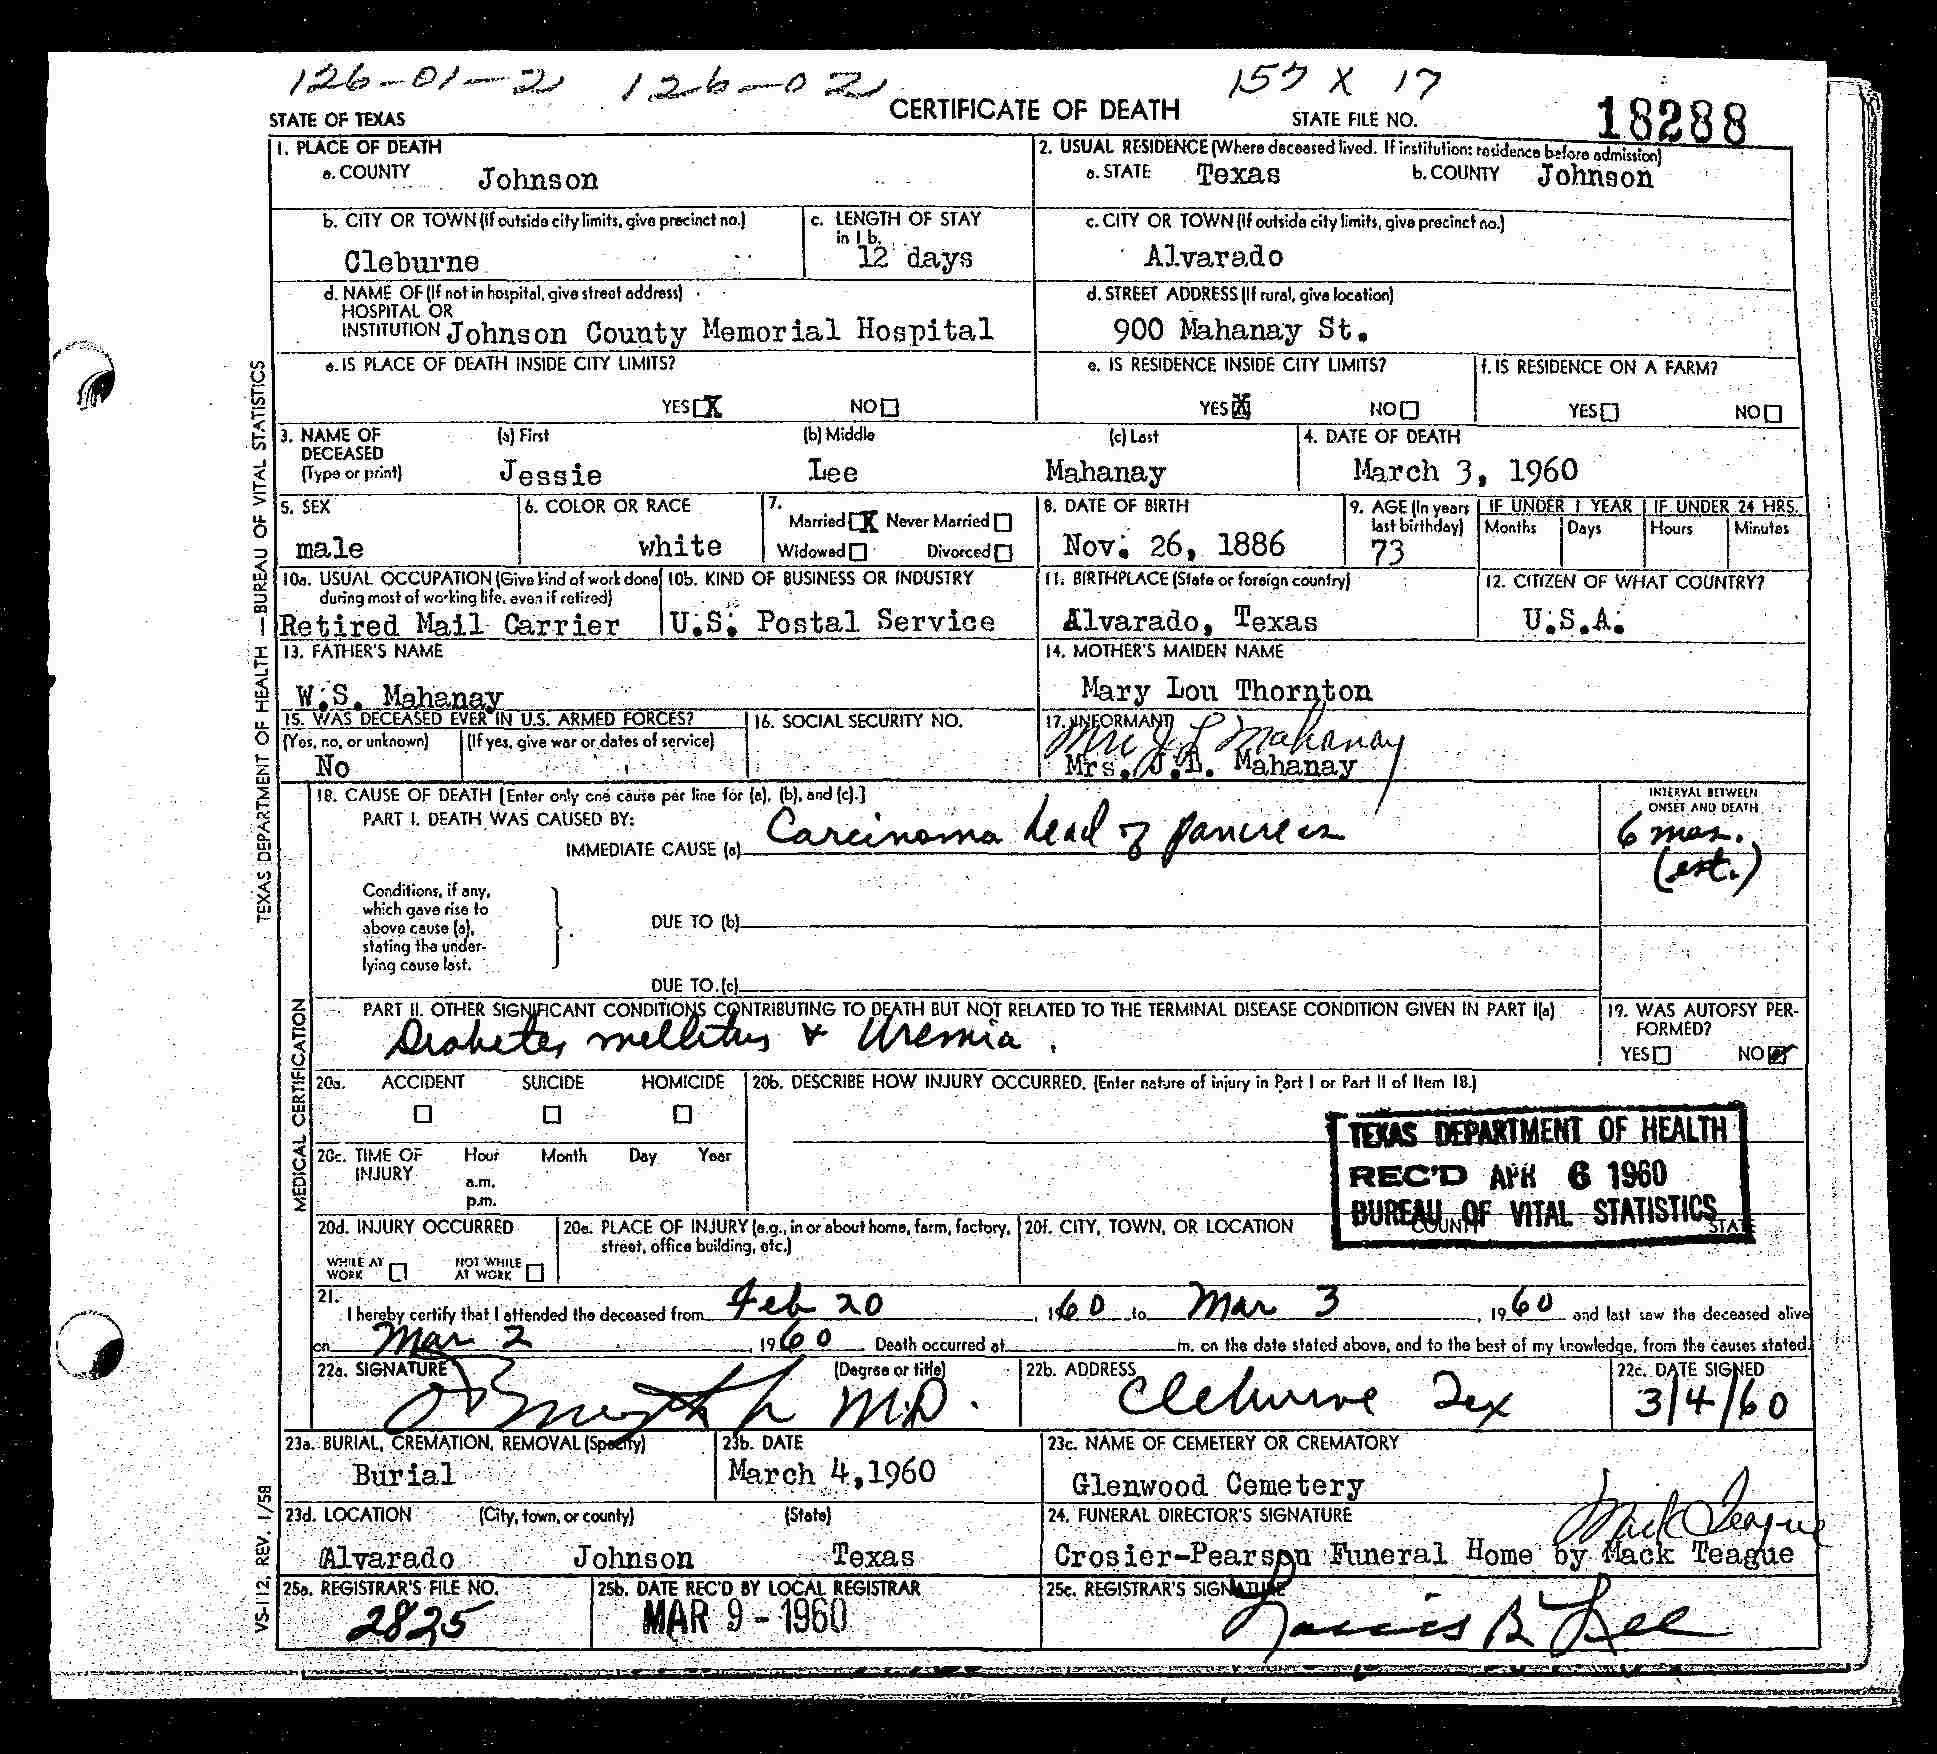 126-01-2 126-02 157 X 17
STATE OF TEXAS CERTIFICATE OF DEATH STATE FILE NO. 18288
1. PLACE OF DEATH 2. USUAL RESIDENCE (Where deceased lived. If institution: residence before admission)
a. COUNTY Johnson a. STATE Texas b. COUNTY Johnson
b. CITY OR TOWN (If outside city limits, give precinct no.) c. LENGTH OF STAY in 1 b. c. CITY OR TOWN (If outside city limits, give precinct no.)
Cleburne 12 days Alvarado
d. NAME OF (If not in hospital, give street address) d. STREET ADDRESS (If rural, give location)
HOSPITAL OR
INSTITUTION Johnson County Memorial Hospital 900 Mahanay St.
e. IS PLACE OF DEATH INSIDE CITY LIMITS? e. IS RESIDENCE INSIDE CITY LIMITS? f. IS RESIDENCE ON A FARM?
YES X NO YES X NO YES NO
3. NAME OF DECEASED (Type or print) (a) First (b) Middle (c) Last 4. DATE OF DEATH
Jessie Lee Mahanay March 3, 1960
5. SEX 6. COLOR OR RACE 7. Married X Never Married 8. DATE OF BIRTH 9. AGE (In years last birthday) IF UNDER 1 YEAR IF UNDER 24 HRS.
Months Days Hours Minutes
male white Widowed Divorced Nov. 26, 1886 73
10a. USUAL OCCUPATION (Give kind of work done during most of working life, even if retired) 10b. KIND OF BUSINESS OR INDUSTRY 11. BIRTHPLACE (State or foreign country) 12. CITIZEN OF WHAT COUNTRY?
Retired Mail Carrier U.S. Postal Service Alvarado, Texas U.S.A.
13. FATHER'S NAME 14. MOTHER'S MAIDEN NAME
W.S. Mahanay Mary Lou Thornton
15. WAS DECEASED EVER IN U.S. ARMED FORCES? 16. SOCIAL SECURITY NO. 17. INFORMANT
(Yes, no, or unknown) (If yes, give war or dates of service) Mrs J L Mahanay
No Mrs. J.L. Mahanay
18. CAUSE OF DEATH [Enter only one cause per line for (a), (b), and (c).] INTERVAL BETWEEN ONSET AND DEATH
PART I. DEATH WAS CAUSED BY:
IMMEDIATE CAUSE (a) Carcinoma head of pancreas 6 mos.
(est.)
Conditions, if any,
which gave rise to
above cause (a),
stating the under-
lying cause last.
DUE TO (b)
DUE TO (c)
PART II. OTHER SIGNIFICANT CONDITIONS CONTRIBUTING TO DEATH BUT NOT RELATED TO THE TERMINAL DISEASE CONDITION GIVEN IN PART I(a) 19. WAS AUTOPSY PER-
FORMED?
Diabetes mellitus & Uremia. YES NO
20a. ACCIDENT SUICIDE HOMICIDE 20b. DESCRIBE HOW INJURY OCCURRED. (Enter nature of injury in Part I or Part II of Item 18.)
20c. TIME OF INJURY Hour Month Day Year
a.m.
p.m.
TEXAS DEPARTMENT OF HEALTH
REC'D APR 6 1960
BUREAU OF VITAL STATISTICS
20d. INJURY OCCURRED 20e. PLACE OF INJURY (e.g., in or about home, farm, factory, street, office building, etc.) 20f. CITY, TOWN, OR LOCATION COUNTY STATE
WHILE AT WORK NOT WHILE AT WORK
21. I hereby certify that I attended the deceased from Feb 20, 1960 to Mar 3, 1960 and last saw the deceased alive
on Mar 2, 1960 Death occurred at m. on the date stated above, and to the best of my knowledge, from the causes stated.
22a. SIGNATURE (Degree or title) 22b. ADDRESS 22c. DATE SIGNED
M.D. Cleburne Tex 3/4/60
23a. BURIAL, CREMATION, REMOVAL (Specify) 23b. DATE 23c. NAME OF CEMETERY OR CREMATORY
Burial March 4, 1960 Glenwood Cemetery
23d. LOCATION (City, town, or county) (State) 24. FUNERAL DIRECTOR'S SIGNATURE Mack Teague
Alvarado Johnson Texas Crosier-Pearson Funeral Home by Mack Teague
25a. REGISTRAR'S FILE NO. 25b. DATE REC'D BY LOCAL REGISTRAR 25c. REGISTRAR'S SIGNATURE
2825 MAR 9 - 1960 B. Lee
TEXAS DEPARTMENT OF HEALTH — BUREAU OF VITAL STATISTICS
MEDICAL CERTIFICATION
VS-112, REV. 1/58